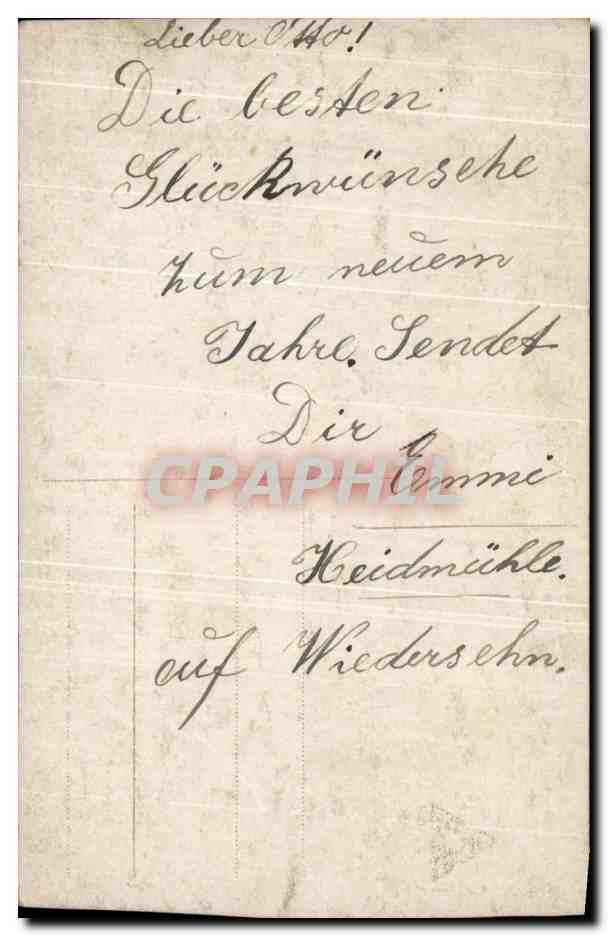 Lieber Otto!
Die besten
Glückwünsche
zum neuem
Jahre. Sendet
Dir
Emmi
CPAPHIL
Heidmühle.
auf Wiedersehn.